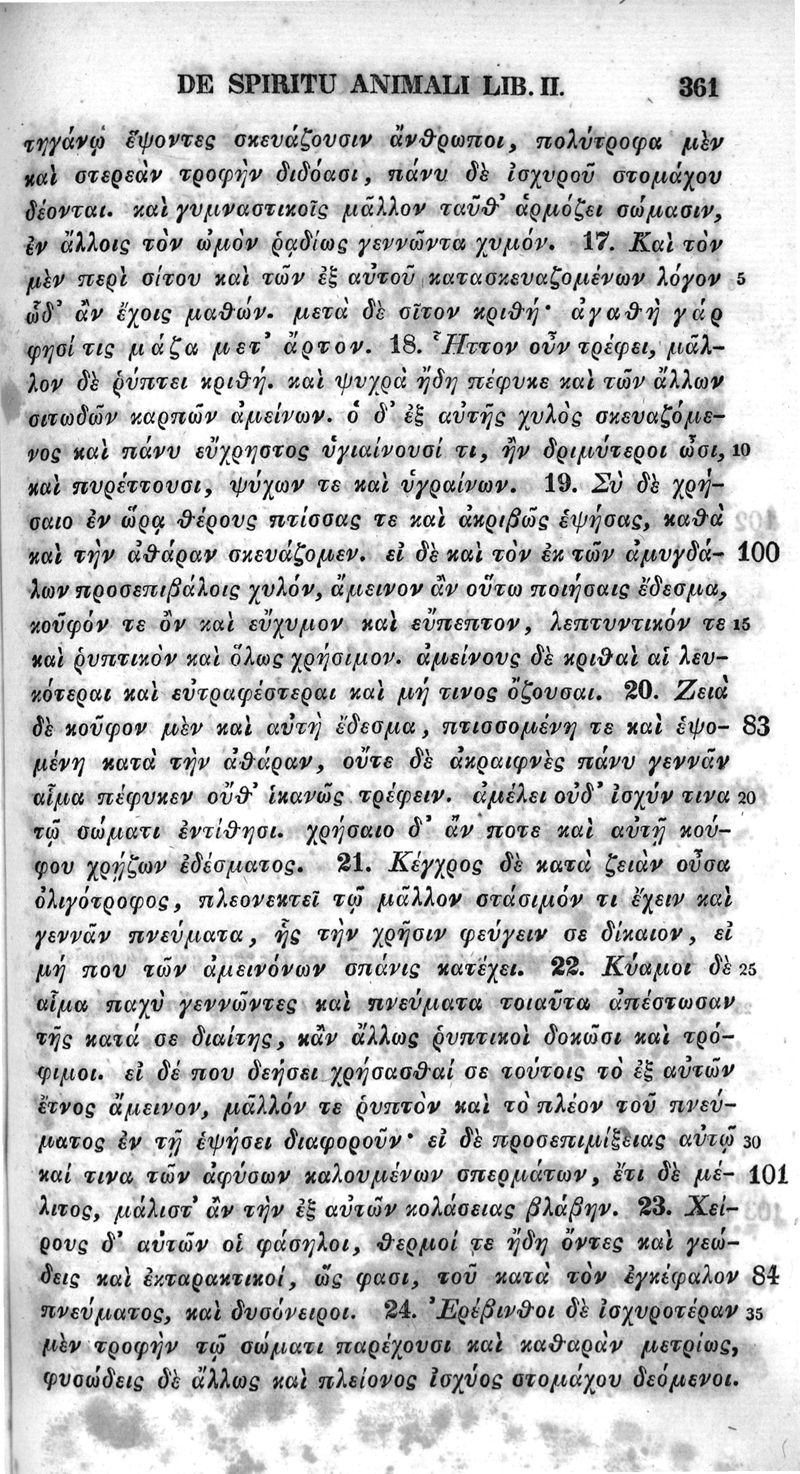 DE SPIRITU ANIMALI LIB. II. 361
τηγάνῳ ἕψοντες σκευάζουσιν ἄνθρωποι, πολύτροφα μὲν
καὶ στερεὰν τροφὴν διδόασι, πάνυ δὲ ἰσχυροῦ στομάχου
δέονται. καὶ γυμναστικοῖς μᾶλλον ταῦθ᾽ ἁρμόζει σώμασιν,
ἐν ἄλλοις τὸν ὠμὸν ῥᾳδίως γεννῶντα χυμόν. 17. Καὶ τὸν
μὲν περὶ σίτου καὶ τῶν ἐξ αὐτοῦ κατασκευαζομένων λόγον 5
ὧδ᾽ ἂν ἔχοις μαθών. μετὰ δὲ σῖτον κριθή· ἀγαθὴ γάρ
φησί τις μάζα μετ᾽ ἄρτον. 18. Ἧττον οὖν τρέφει, μᾶλ-
λον δὲ ῥύπτει κριθή. καὶ ψυχρὰ ἤδη πέφυκε καὶ τῶν ἄλλων
σιτωδῶν καρπῶν ἀμείνων. ὁ δ᾽ ἐξ αὐτῆς χυλὸς σκευαζόμε-
νος καὶ πάνυ εὔχρηστος ὑγιαίνουσί τι, ἢν δριμύτεροι ὦσι, 10
καὶ πυρέττουσι, ψύχων τε καὶ ὑγραίνων. 19. Σὺ δὲ χρή-
σαιο ἐν ὥρᾳ θέρους πτίσσας τε καὶ ἀκριβῶς ἑψήσας, καθὰ
καὶ τὴν ἀθάραν σκευάζομεν. εἰ δὲ καὶ τὸν ἐκ τῶν ἀμυγδά- 100
λων προσεπιβάλοις χυλόν, ἄμεινον ἂν οὕτω ποιήσαις ἔδεσμα,
κοῦφόν τε ὂν καὶ εὔχυμον καὶ εὔπεπτον, λεπτυντικόν τε 15
καὶ ῥυπτικὸν καὶ ὅλως χρήσιμον. ἀμείνους δὲ κριθαὶ αἱ λευ-
κότεραι καὶ εὐτραφέστεραι καὶ μή τινος ὄζουσαι. 20. Ζειὰ
δὲ κοῦφον μὲν καὶ αὐτὴ ἔδεσμα, πτισσομένη τε καὶ ἑψο- 83
μένη κατὰ τὴν ἀθάραν, οὔτε δὲ ἀκραιφνὲς πάνυ γεννᾶν
αἷμα πέφυκεν οὔθ᾽ ἱκανῶς τρέφειν. ἀμέλει οὐδ᾽ ἰσχύν τινα 20
τῷ σώματι ἐντίθησι. χρήσαιο δ᾽ ἄν ποτε καὶ αὐτῇ κού-
φου χρῄζων ἐδέσματος. 21. Κέγχρος δὲ κατὰ ζειὰν οὖσα
ὀλιγότροφος, πλεονεκτεῖ τῷ μᾶλλον στάσιμόν τι ἔχειν καὶ
γεννᾶν πνεύματα, ἧς τὴν χρῆσιν φεύγειν σε δίκαιον, εἰ
μή που τῶν ἀμεινόνων σπάνις κατέχει. 22. Κύαμοι δὲ 25
αἷμα παχὺ γεννῶντες καὶ πνεύματα τοιαῦτα ἀπέστωσαν
τῆς κατά σε διαίτης, κἂν ἄλλως ῥυπτικοὶ δοκῶσι καὶ τρό-
φιμοι. εἰ δέ που δεήσει χρήσασθαί σε τούτοις τὸ ἐξ αὐτῶν
ἔτνος ἄμεινον, μᾶλλόν τε ῥυπτὸν καὶ τὸ πλέον τοῦ πνεύ-
ματος ἐν τῇ ἑψήσει διαφοροῦν· εἰ δὲ προσεπιμίξειας αὐτῷ 30
καί τινα τῶν ἀφύσων καλουμένων σπερμάτων, ἔτι δὲ μέ- 101
λιτος, μάλιστ᾽ ἂν τὴν ἐξ αὐτῶν κολάσειας βλάβην. 23. Χεί-
ρους δ᾽ αὐτῶν οἱ φάσηλοι, θερμοί τε ἤδη ὄντες καὶ γεώ-
δεις καὶ ἐκταρακτικοί, ὥς φασι, τοῦ κατὰ τὸν ἐγκέφαλον 84
πνεύματος, καὶ δυσόνειροι. 24. Ἐρέβινθοι δὲ ἰσχυροτέραν 35
μὲν τροφὴν τῷ σώματι παρέχουσι καὶ καθαρὰν μετρίως,
φυσώδεις δὲ ἄλλως καὶ πλείονος ἰσχύος στομάχου δεόμενοι.